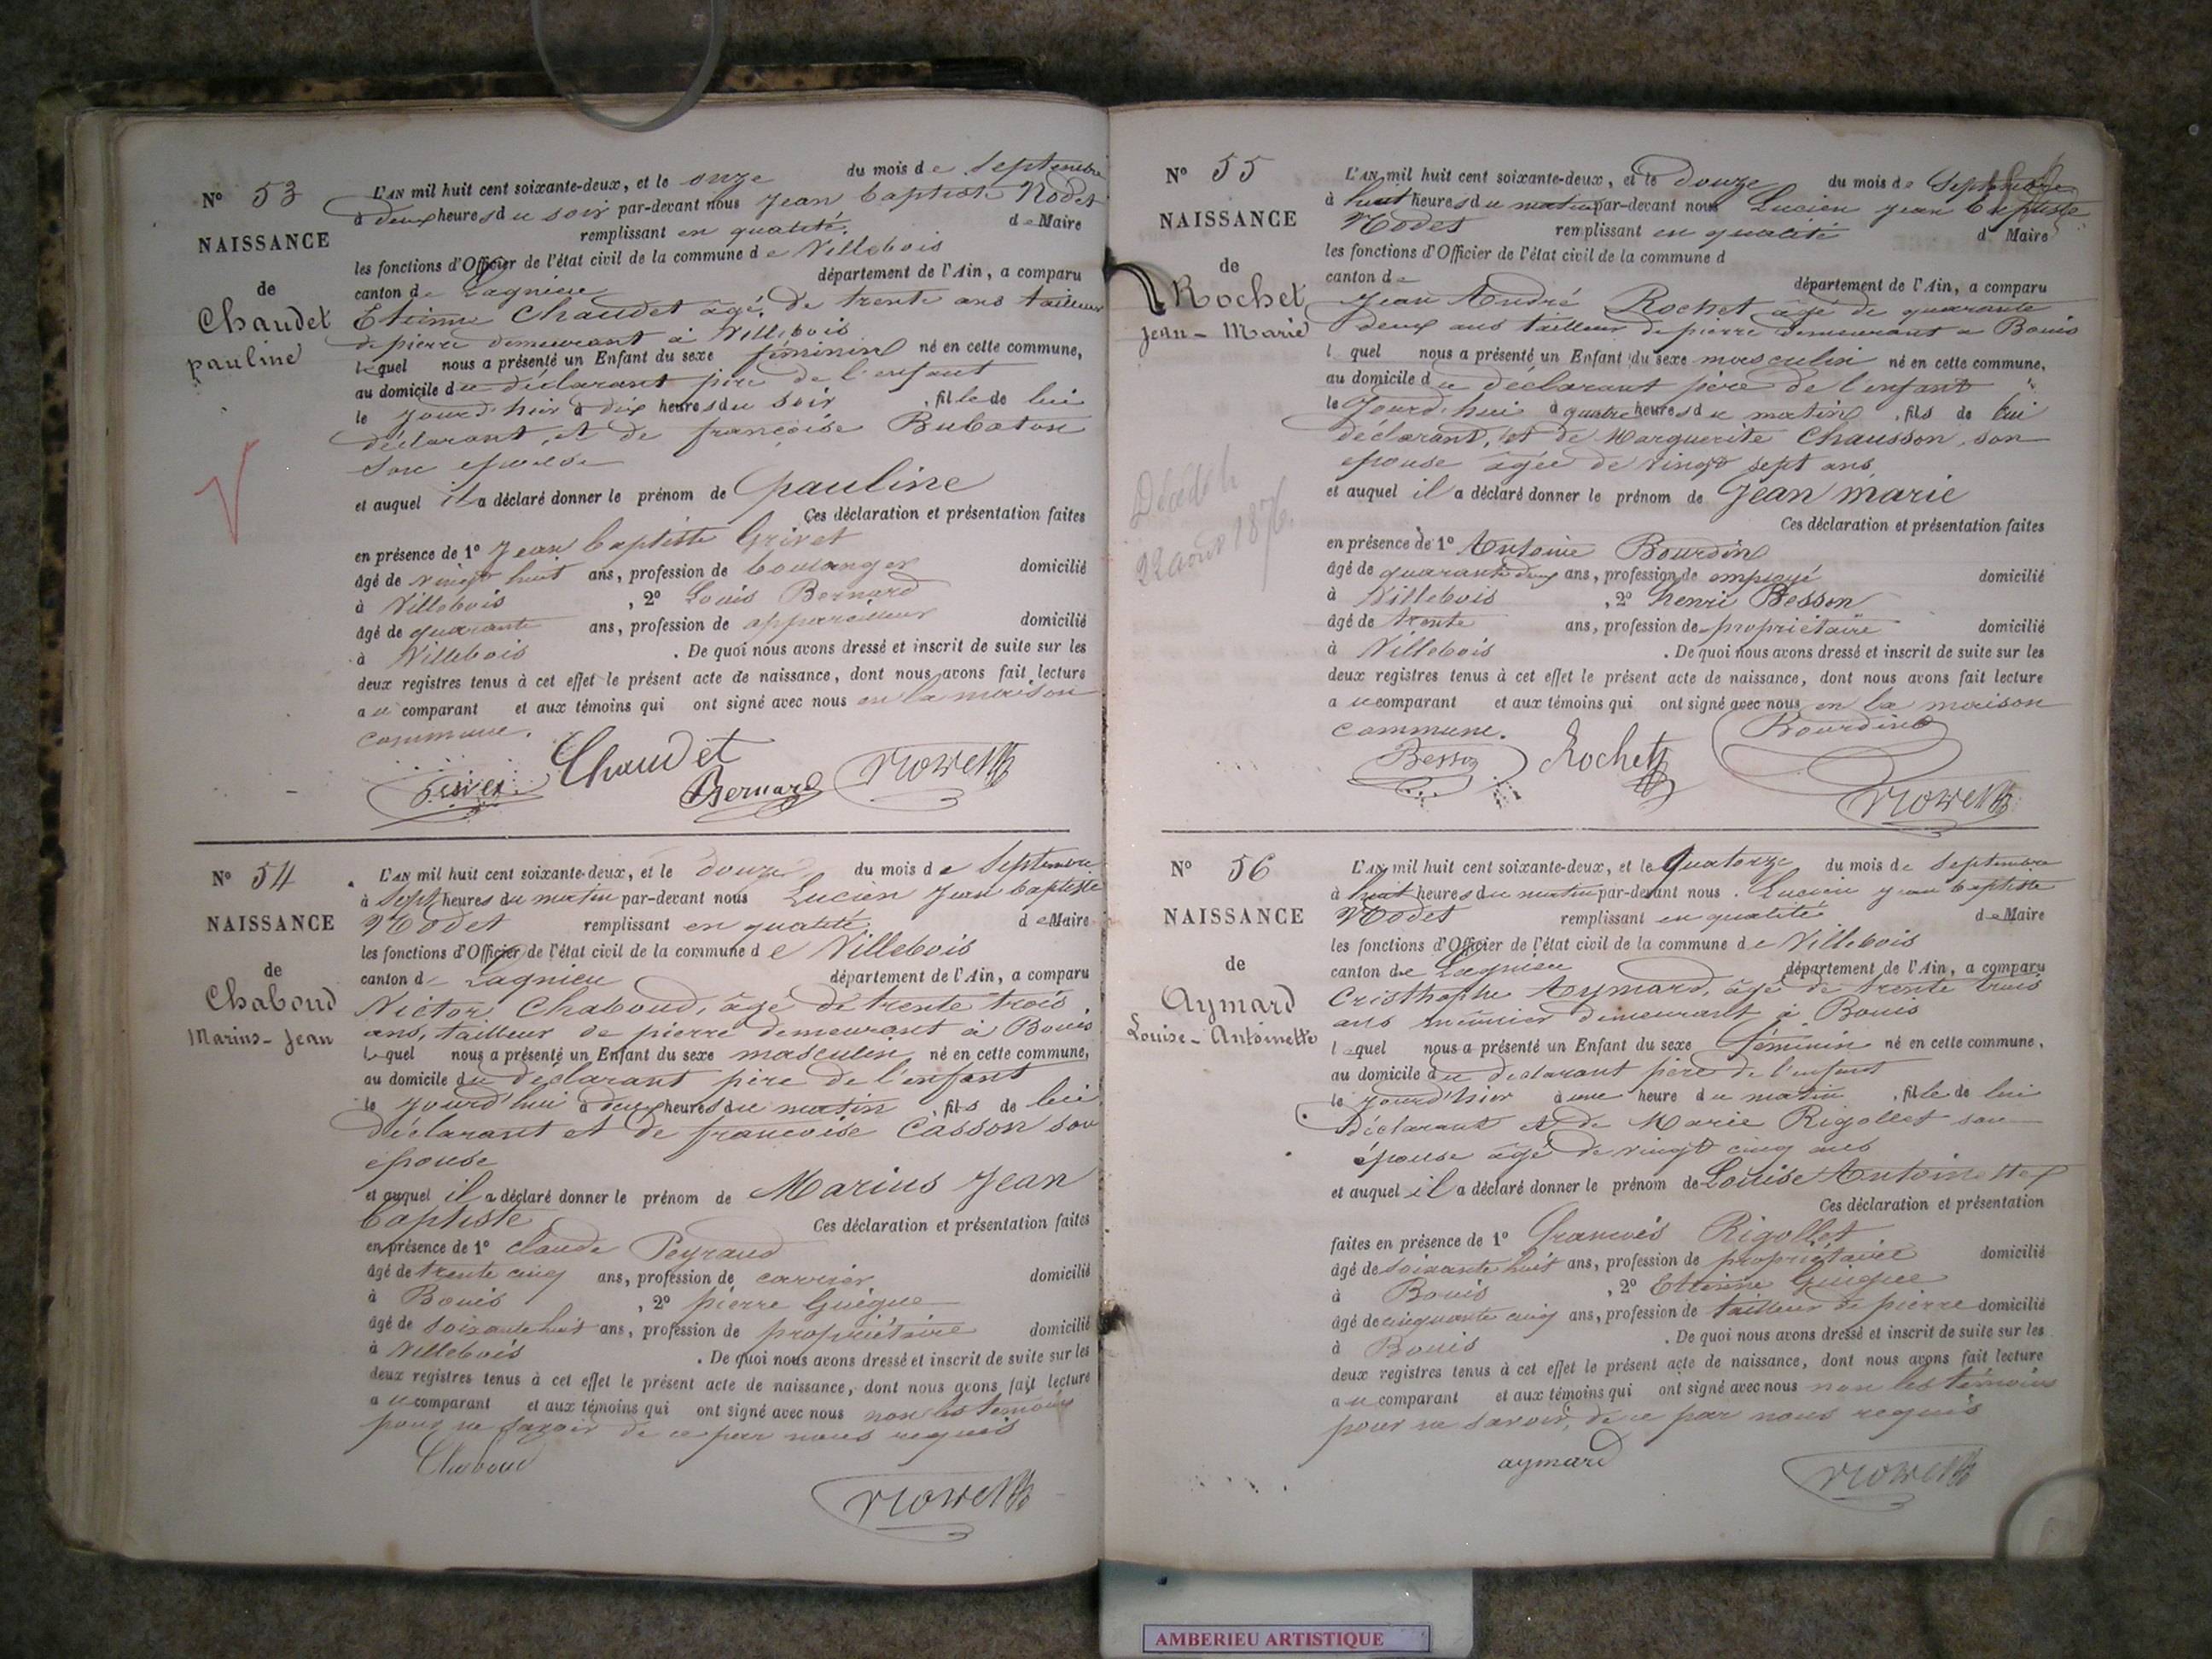 N° 53
NAISSANCE
de
Chaudet
pauline
L'AN mil huit cent soixante-deux, et le onze du mois de Septembre
à deux heures du soir par-devant nous Jean baptiste Nodet
remplissant en qualité de Maire
les fonctions d'Officier de l'état civil de la commune de Villebois
canton de Lagnieu département de l'Ain, a comparu
Etienne Chaudet âgé de trente ans tailleur
de pierre demeurant à Villebois
lequel nous a présenté un Enfant du sexe féminin né en cette commune,
au domicile du déclarant père de l'enfant
le jourd'hier à dix heures du soir, fille de lui
déclarant et de françoise Bubaton
son epouse
et auquel il a déclaré donner le prénom de pauline
Ces déclaration et présentation faites
en présence de 1° Jean baptiste Grivet
âgé de vingt huit ans, profession de boulanger domicilié
à Villebois, 2° Louis Bernard
âgé de quarante ans, profession de appareilleur domicilié
à Villebois. De quoi nous avons dressé et inscrit de suite sur les
deux registres tenus à cet effet le présent acte de naissance, dont nous avons fait lecture
au comparant et aux témoins qui ont signé avec nous en la maison
commune.
Chaudet
Bernard
N° 54
NAISSANCE
de
Chaboud
Marius-Jean
L'AN mil huit cent soixante-deux, et le douze du mois de Septembre
à Sept heures du matin par-devant nous Lucien Jean baptiste
Nodet remplissant en qualité de Maire
les fonctions d'Officier de l'état civil de la commune de Villebois
canton de Lagnieu département de l'Ain, a comparu
Victor Chaboud, âgé de trente trois
ans, tailleur de pierre demeurant à Bouis
lequel nous a présenté un Enfant du sexe masculin né en cette commune,
au domicile du déclarant père de l'enfant
le jourd'hui à deux heures du matin, fils de lui
déclarant et de francoise Casson son
epouse
et auquel il a déclaré donner le prénom de Marius Jean
baptiste Ces déclaration et présentation faites
en présence de 1° claude Peyraud
âgé de trente cinq ans, profession de carrier domicilié
à Bouis, 2° pierre Guigue
âgé de soixante huit ans, profession de propriétaire domicilié
à Villebois. De quoi nous avons dressé et inscrit de suite sur les
deux registres tenus à cet effet le présent acte de naissance, dont nous avons fait lecture
au comparant et aux témoins qui ont signé avec nous non les temoins
pour ne savoir de ce par nous requis
Chaboud
N° 55
NAISSANCE
de
Rochet
Jean-Marie
Décédé le
22 août 1876.
L'AN mil huit cent soixante-deux, et le douze du mois de Septembre
à huit heures du matin par-devant nous Lucien Jean Baptiste
Nodet remplissant en qualité d Maire
les fonctions d'Officier de l'état civil de la commune d
canton de département de l'Ain, a comparu
Jean André Rochet âgé de quarante
deux ans tailleur de pierre demeurant a Bouis
l quel nous a présenté un Enfant du sexe masculin né en cette commune,
au domicile du déclarant père de l'enfant
le Jourd'hui à quatre heures du matin, fils de lui
déclarant, et de Marguerite Chausson, son
epouse âgée de vingt sept ans,
et auquel il a déclaré donner le prénom de Jean marie
Ces déclaration et présentation faites
en présence de 1° Antoine Bourdin
âgé de quarante deux ans, profession de employé domicilié
à Villebois, 2° henri Besson
âgé de trente ans, profession de propriétaire domicilié
à Villebois. De quoi nous avons dressé et inscrit de suite sur les
deux registres tenus à cet effet le présent acte de naissance, dont nous avons fait lecture
au comparant et aux témoins qui ont signé avec nous en la maison
commune.
Bourdin
Besson
Rochet
N° 56
NAISSANCE
de
Aymard
Louise-Antoinette
L'AN mil huit cent soixante-deux, et le Quatorze du mois de Septembre
à huit heures du matin par-devant nous Lucien Jean baptiste
Nodet remplissant en qualité de Maire
les fonctions d'Officier de l'état civil de la commune de Villebois
canton de Lagnieu département de l'Ain, a comparu
Cristhophe Aymard, âgé de trente trois
ans meûnier demeurant à Bouis
lequel nous a présenté un Enfant du sexe féminin né en cette commune,
au domicile du declarant père de l'enfant
le jourd'hier à une heure du matin, fille de lui
déclarant et de Marie Rigollet son
épouse âgé de vingt cinq ans
et auquel il a déclaré donner le prénom de Louise Antoinette
Ces déclaration et présentation
faites en présence de 1° francois Rigollet
âgé de soixante huit ans, profession de propriétaire domicilié
à Bouis, 2° Etienne Guigue
âgé de cinquante cinq ans, profession de tailleur de pierre domicilié
à Bouis. De quoi nous avons dressé et inscrit de suite sur les
deux registres tenus à cet effet le présent acte de naissance, dont nous avons fait lecture
au comparant et aux témoins qui ont signé avec nous non les témoins
pour ne savoir, de ce par nous requis
aymard
AMBERIEU ARTISTIQUE